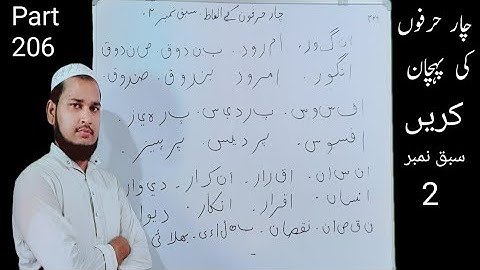 Part
206
چار حرفوں
کی پہچان
کریں
سبق نمبر
2
چار حرفوں کے الفاظ سبق نمبر ۲.
ان گ ور. ام رود. ب ن دوق ص ن دوق
انگور. امرود بندوق. صندوق.
اف س وس. پ ردی س. پ ر ہ ی ز.
افسوس. پردیس. پرہیز.
ان س ان. اق رار. ان ک ار. دی وار
انسان. اقرار. انکار. دیوار
ن ق ص ان. نقصان. بھلائی